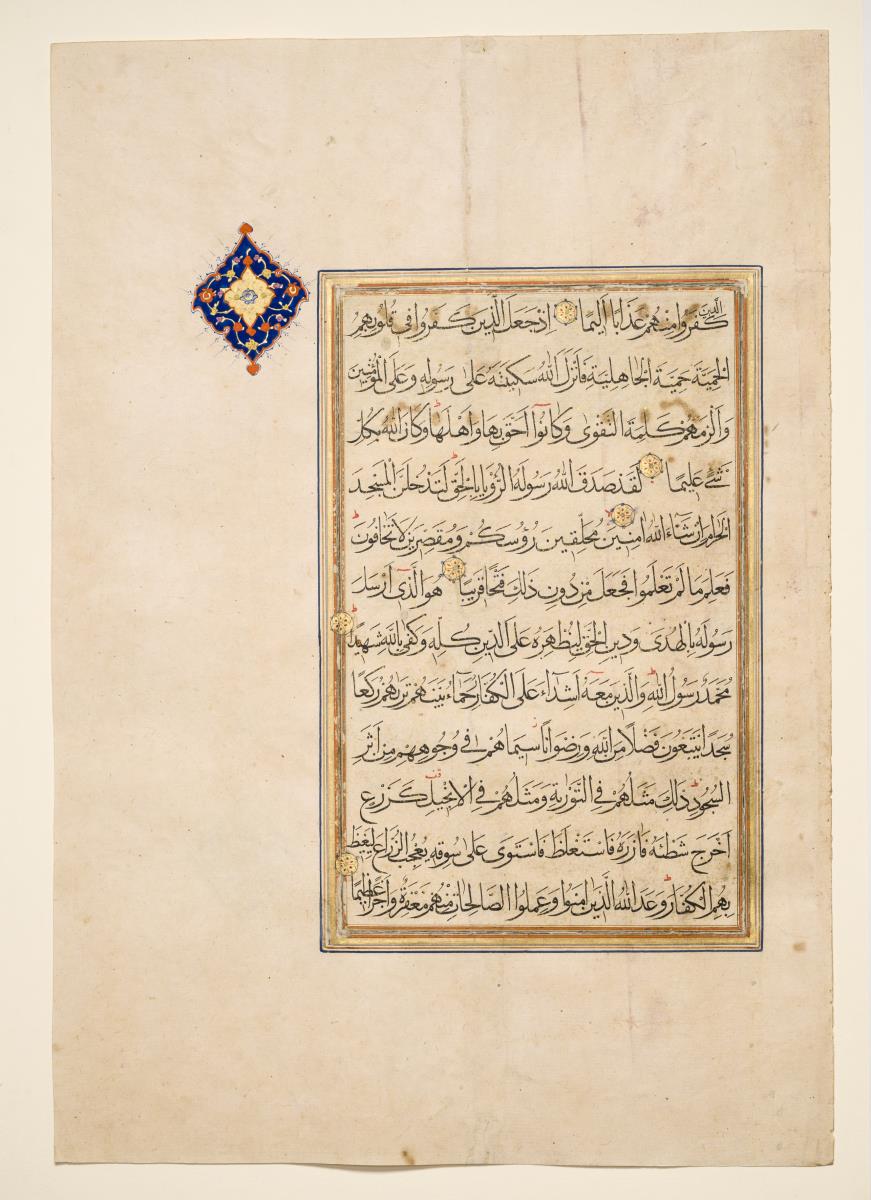 الَّذِينَ كَفَرُوا مِنْهُمْ عَذَابًا اَلِيمًا اِذْ جَعَلَ الَّذِينَ كَفَرُوا فِي قُلُوبِهِمُ
الْحَمِيَّةَ حَمِيَّةَ الْجَاهِلِيَّةِ فَاَنْزَلَ اللّٰهُ سَكِينَتَهُ عَلٰى رَسُولِهِ وَعَلَى الْمُؤْمِنِينَ
وَاَلْزَمَهُمْ كَلِمَةَ التَّقْوٰى وَكَانُوا اَحَقَّ بِهَا وَاَهْلَهَا وَكَانَ اللّٰهُ بِكُلِّ
شَيْءٍ عَلِيمًا لَقَدْ صَدَقَ اللّٰهُ رَسُولَهُ الرُّؤْيَا بِالْحَقِّ لَتَدْخُلُنَّ الْمَسْجِدَ
الْحَرَامَ اِنْ شَاءَ اللّٰهُ اٰمِنِينَ مُحَلِّقِينَ رُؤُسَكُمْ وَمُقَصِّرِينَ لَا تَخَافُونَ
فَعَلِمَ مَا لَمْ تَعْلَمُوا فَجَعَلَ مِنْ دُونِ ذٰلِكَ فَتْحًا قَرِيبًا هُوَ الَّذِي اَرْسَلَ
رَسُولَهُ بِالْهُدٰى وَدِينِ الْحَقِّ لِيُظْهِرَهُ عَلَى الدِّينِ كُلِّهِ وَكَفٰى بِاللّٰهِ شَهِيدًا
مُحَمَّدٌ رَسُولُ اللّٰهِ وَالَّذِينَ مَعَهُ اَشِدَّاءُ عَلَى الْكُفَّارِ رُحَمَاءُ بَيْنَهُمْ تَرٰيهُمْ رُكَّعًا
سُجَّدًا يَبْتَغُونَ فَضْلًا مِنَ اللّٰهِ وَرِضْوَانًا سِيمَاهُمْ فِي وُجُوهِهِمْ مِنْ اَثَرِ
السُّجُودِ ذٰلِكَ مَثَلُهُمْ فِي التَّوْرٰيةِ وَمَثَلُهُمْ فِي الْاِنْجِيلِ كَزَرْعٍ
اَخْرَجَ شَطْئَهُ فَاٰزَرَهُ فَاسْتَغْلَظَ فَاسْتَوٰى عَلٰى سُوقِهِ يُعْجِبُ الزُّرَّاعَ لِيَغِيظَ
بِهِمُ الْكُفَّارَ وَعَدَ اللّٰهُ الَّذِينَ اٰمَنُوا وَعَمِلُوا الصَّالِحَاتِ مِنْهُمْ مَغْفِرَةً وَاَجْرًا عَظِيمًا